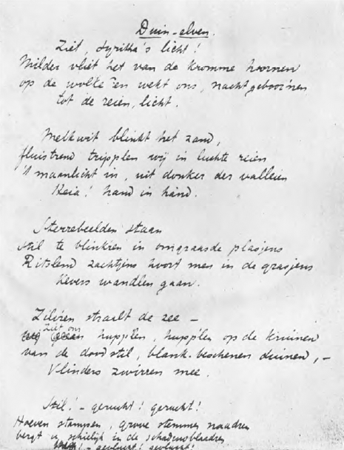 Duin-elven.
Ziet, Lyrikka's licht!
Milder vliet het van de kromme hoornen
op de wolke en wekt ons, nachtgeboornen
tot de reien, licht.
Melkwit blinkt het zand,
fluistrend tripplen wij in luchte reien
't maanlicht in, uit donker der valleien
Reia! hand in hand.
Sterrebeelden staan
stil te blinken in omgraasde plasjens
Ritslend zachtjens hoort men in de grasjens
Kevers wandlen gaan.
Zilvren straalt de zee –
Ziet ons
hupplen, hupplen op de kruinen
van de doodstil, blank-beschenen duinen, –
Vlinders zwirren mee.
Stil! – gerucht! gerucht!
Hoeven stampen, grove stemmen naadren
bergt u schielijk in de schaduwbladren